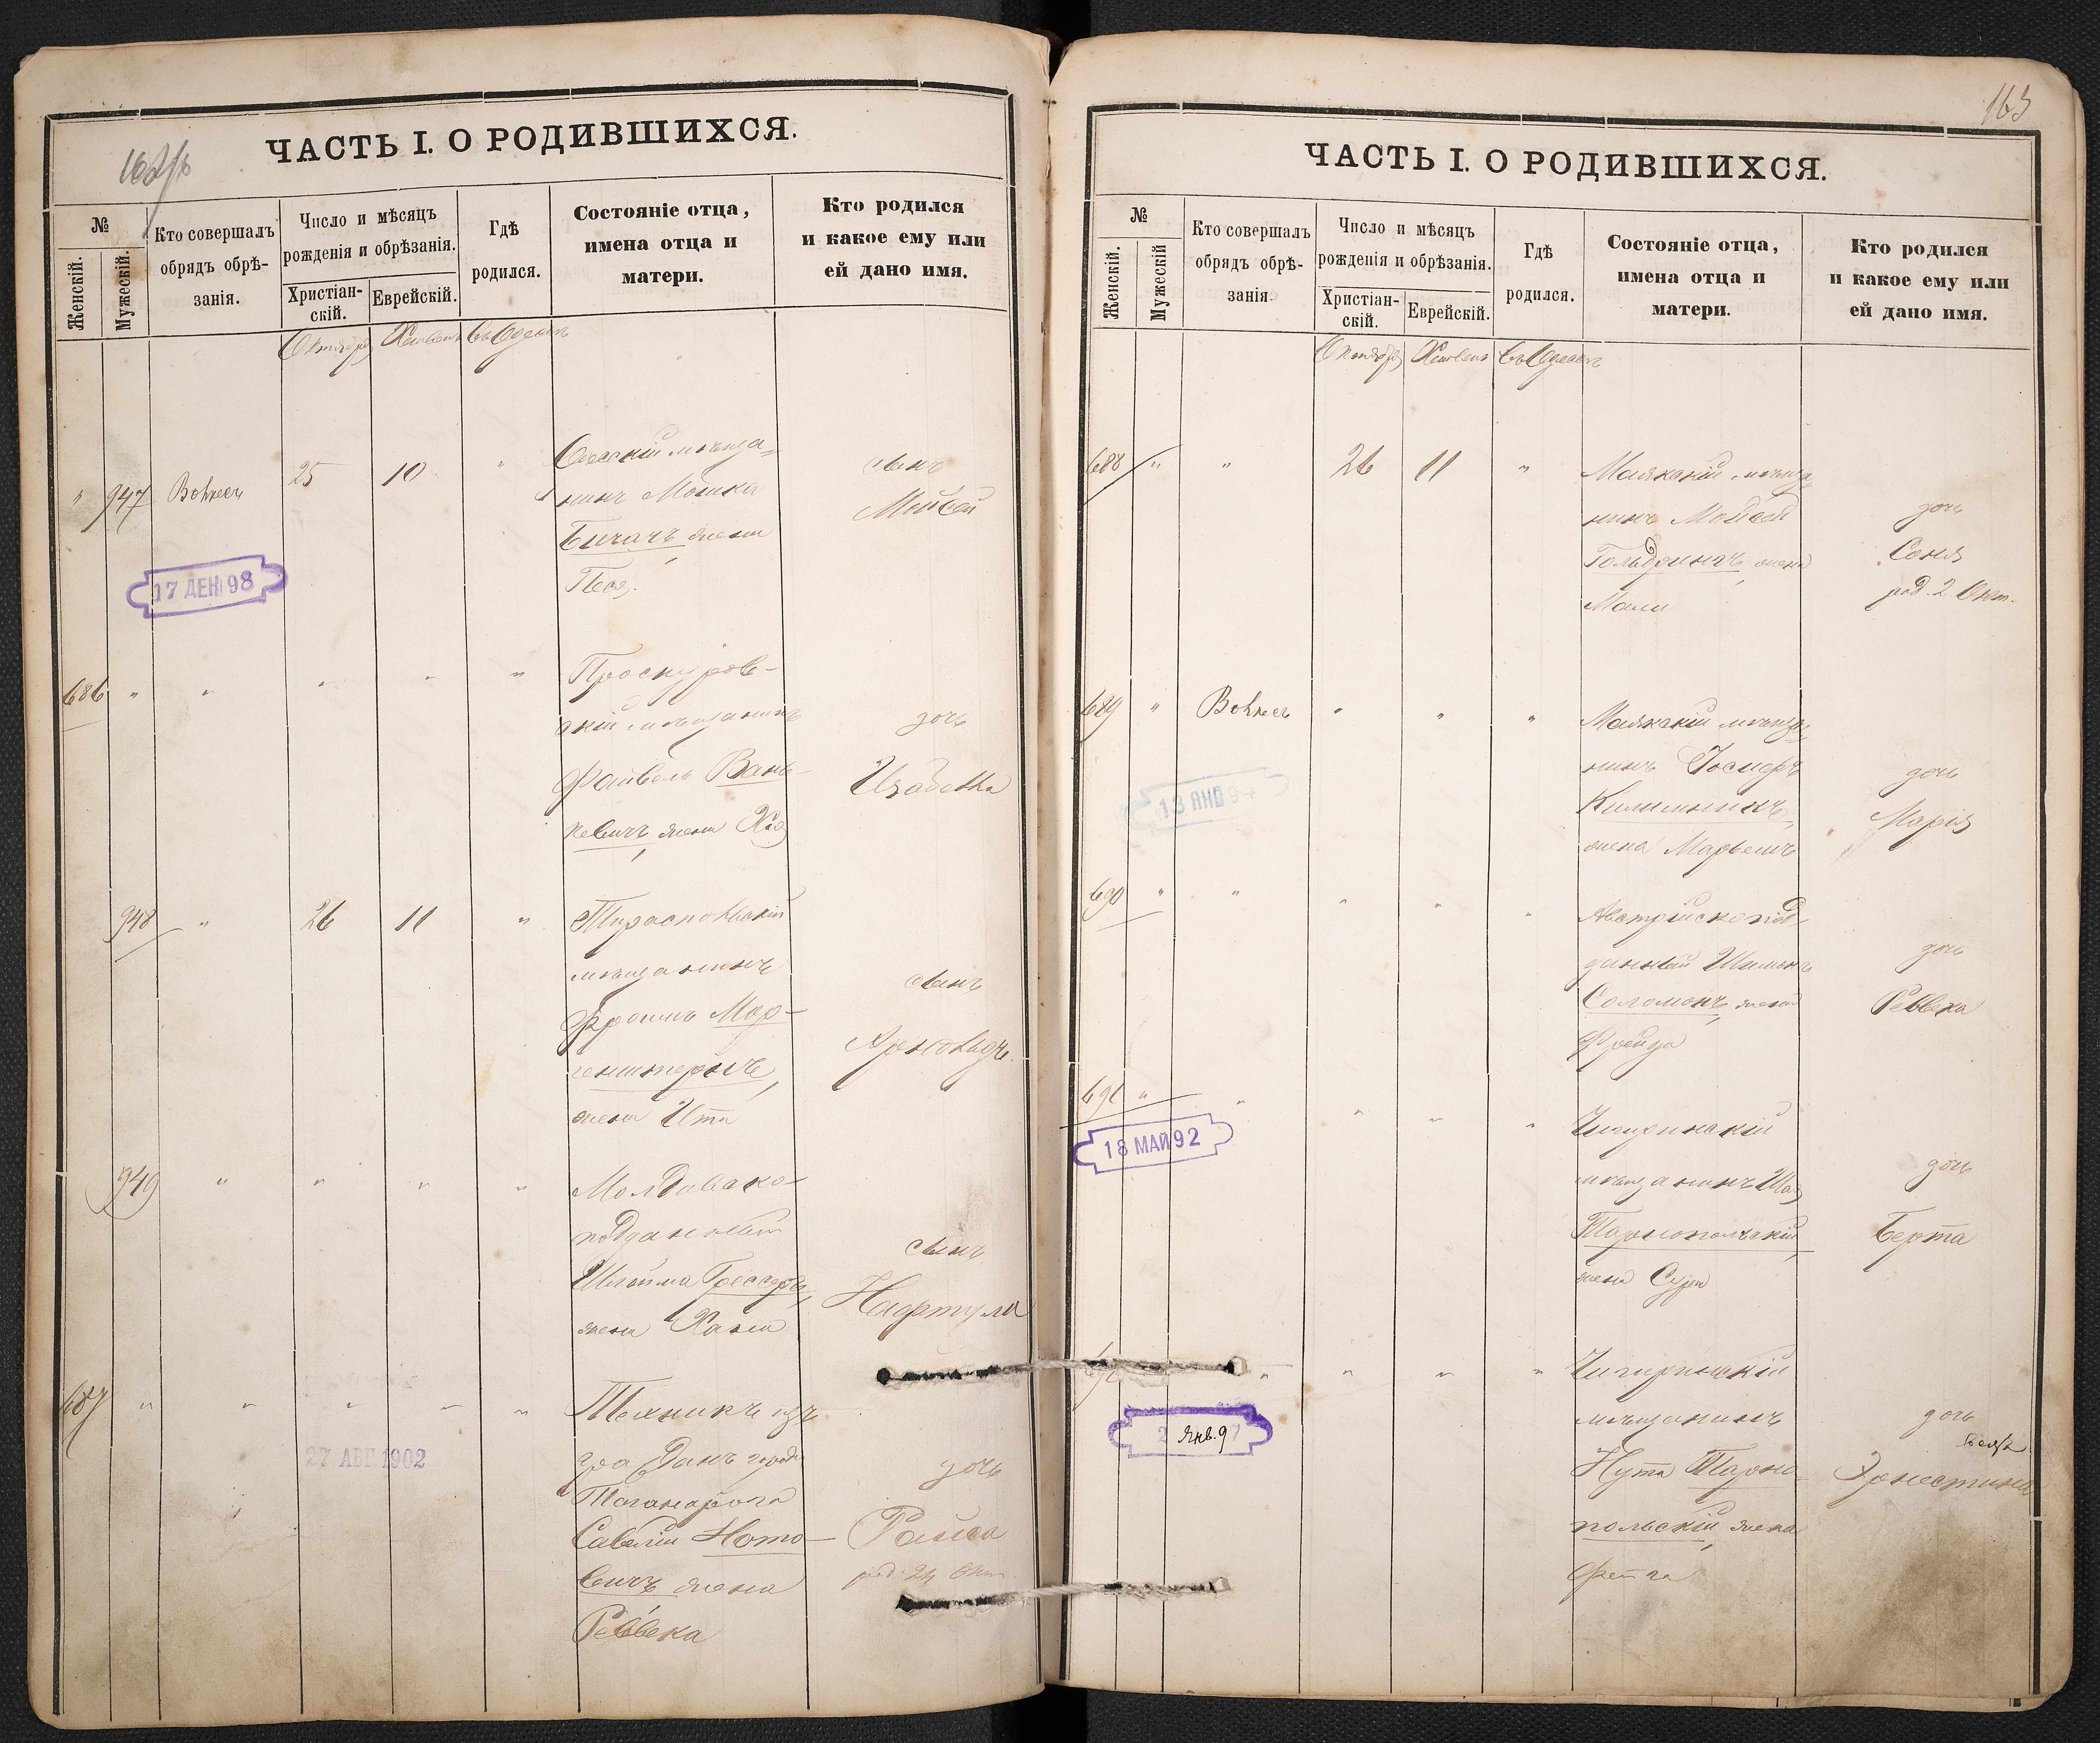 162/б
ЧАСТЬ I. О РОДИВШИХСЯ.
№
Женскій.
Мужескій.
Кто совершалъ
обрядъ обрѣ-
занія.
Число и мѣсяцъ
рожденія и обрѣзанія.
Христіан-
скій.
Еврейскій.
Гдѣ
родился.
Состояніе отца,
имена отца и
матери.
Кто родился
и какое ему или
ей дано имя.
Октября Хешвенъ Въ Одессѣ
" 947 Вольресъ 25 10 "
Одесскій мѣща=
нинъ Мошка
Бихачъ, жена
Песя.
сынъ
Мойсей
17 ДЕК 98
686 " " " " "
Проскуров-
скій мѣщанинъ
Файвель Вань-
кевичъ, жена Хая
дочь
Изабелла
948 " 26 11 "
Тираспольскій
мѣщанинъ
Фроимъ Мор-
генштернъ,
жена Ита
сынъ
Арнольдъ.
949 " " " "
Молдавско-
подданный
Шлойма Грессеръ,
жена Хана
сынъ
Нафтула
687 " " " " "
Техникъ изъ
гражданъ города
Таганрога
Савелій Ното-
вичъ, жена
Ревека
дочь
Раиса
род. 24 Окт.
27 АВГ 1902
163
ЧАСТЬ I. О РОДИВШИХСЯ.
№
Женскій.
Мужескій
Кто совершалъ
обрядъ обрѣ-
занія.
Число и мѣсяцъ
рожденія и обрѣзанія.
Христіан-
скій.
Еврейскій.
Гдѣ
родился.
Состояніе отца,
имена отца и
матери.
Кто родился
и какое ему или
ей дано имя.
Октября Хешвенъ Въ Одессѣ
688 " " 26 11 "
Маякскій мѣща=
нинъ Мойсей
жена
Мали
дочь
Соня
род. 2 Окт.
689 " Вольресъ " " "
Маякскій мѣща=
нинъ Іосифъ
Килимникъ,
жена Марьемъ
дочь
Марія
13 ЯНВ 94
690 " " " " "
Австрійскопод-
данный Шимонъ
Соломонъ, жена
Фрейда
дочь
Ревека
691 " " " " "
Чигиринскій
мѣщанинъ Шая
Тарнопольскій,
жена Сура
дочь
Берта
18 МАЙ 92
692 " " " "
Чигиринскій
мѣщанинъ
Нута Тарно-
польскій, жена
Фейга
дочь
Эрнестина
2 Янв. 97